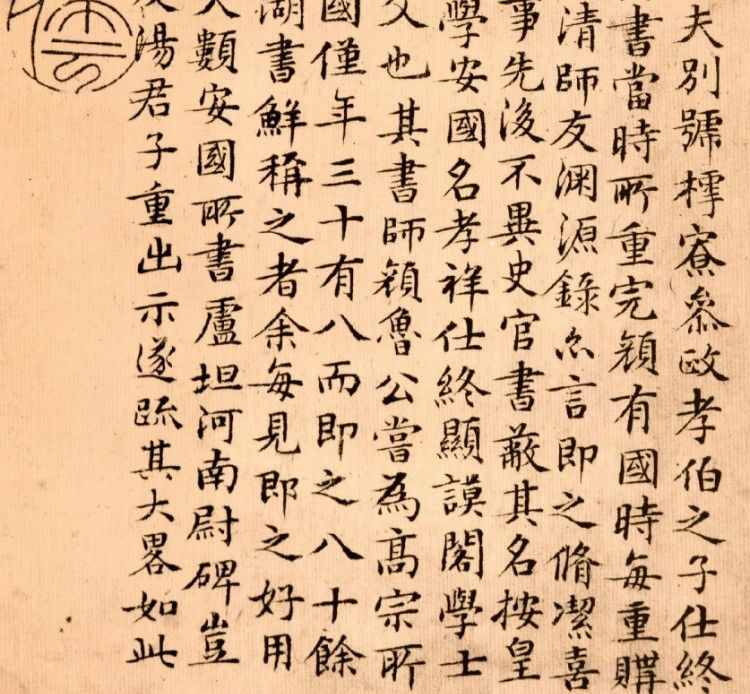 夫別號樗寮叅政孝伯之子仕終
書當時所重完顏有國時每重購
清師友淵源錄亦言即之脩潔喜
事先後不異史官書蔽其名按皇
學安國名孝祥仕終顯謨閣學士
父也其書師顏魯公嘗為高宗所
國僅年三十有八而即之八十餘
湖書鮮稱之者余每見即之好用
大類安國所書盧坦河南尉碑豈
湯君子重出示遂疏其大畧如此